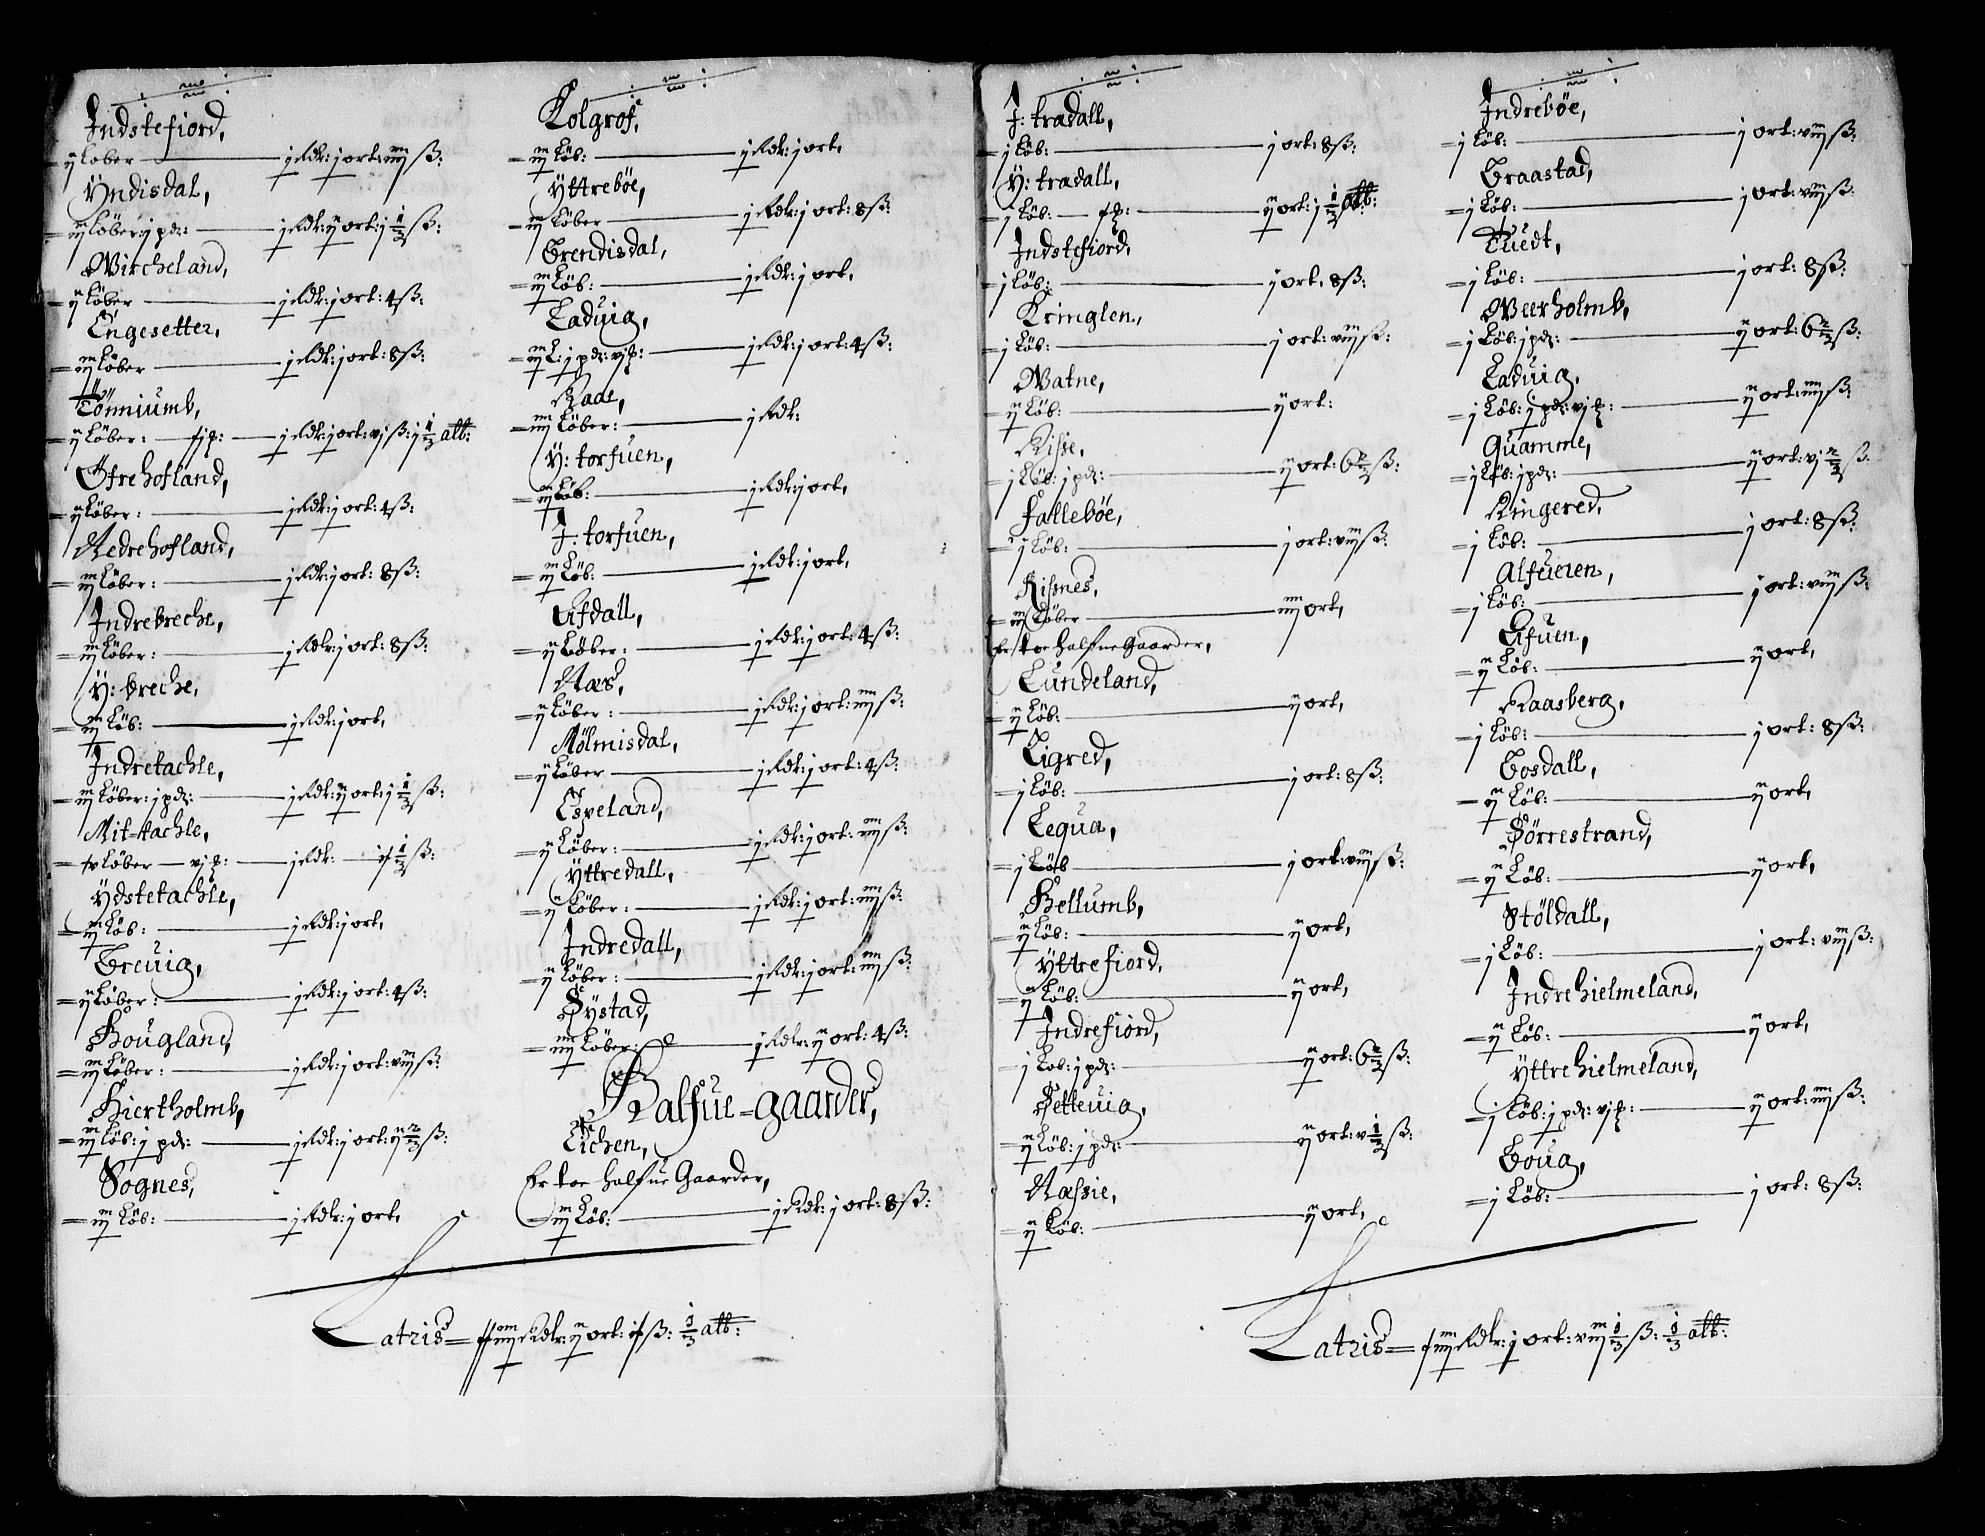 Indstefiord,
ij Løber — j Rdr: j ort: iiij ß:
Yndisdal,
iij Løber: j pd: — j Rdr: ij ort: j 1/3 ß:
Wircheland,
ij Løber — j Rdr: j ort: 4 ß:
Engesetter,
iij Løber — j Rdr: j ort: 8 ß:
Tönniumb,
ij Løber: — j Rdr: j ort: vj ß: j 1/3 alb:
Ofrehofland,
ij Løber: — j Rdr: j ort: 4 ß:
Nedrehofland,
iij Løber: — j Rdr: j ort: 8 ß:
Indrebreche,
iij Løber: — j Rdr: j ort: 8 ß:
Y: breche,
iij Løb: — j Rdr: j ort,
Indretachle,
iij Løber: j pd: — j Rdr: ij ort: j 1/3 ß:
Mit-tachle,
Løber — vj — j Rdr: — 1/3 ß:
Ydstetachle,
iij Løb: — j Rdr: j ort,
Breuig,
ij Løber: — j Rdr: j ort: 4 ß:
Hougland,
iij Løber: — j Rdr: j ort: viij ß:
Hiertholmb,
iij Løb: j pd: — j Rdr: j ort: ij 2/3 ß:
Sognes,
iij Løb: — j Rdr: j ort,
Kolgrof,
iij Løb: — j Rdr: j ort,
Yttrebøe,
iij Løber — j Rdr: j ort: 8 ß:
Brendisdal,
iij Løb: — j Rdr: j ort,
Laduig,
iij L: j pd: vj — j Rdr: j ort: 4 ß:
Rade,
iiij Løber: — j Rdr:
Y: torfuen,
iij Løb: — j Rdr: j ort,
J: torfuen,
iij Løb: — j Rdr: j ort,
Ufdall,
ij Løber: — j Rdr: j ort: 4 ß:
Næs,
ij Løber: — j Rdr: j ort: iiij ß:
Mølmisdal,
ij Løber — j Rdr: j ort: 4 ß:
Espeland,
ij Løber: — j Rdr: j ort: iiij ß:
Yttredall,
ij Løber: — j Rdr: j ort: iiij ß:
Indredall,
ij Løber: — j Rdr: j ort: iiij ß:
Systad,
iiij Løber: — j Rdr: ij ort: 4 ß:
Halfue-gaarder,
Eichen,
Er toe halfue Gaarder,
iij Løb: — j Rdr: j ort: 8 ß:
Latris = Rdr: ij ort: ß: 1/3 alb:
J: tradall,
j Løb: — j ort: 8 ß:
Y: tradall,
j Løb: — ij ort: j 1/3 alb:
Indstefiord,
j Løb: — j ort, 8 ß:
Kringlen,
j Løb: — j ort: viij ß:
Watne,
ij Løb: — ij ort:
Risse,
j Løb: j pd: — ij ort: 6 2/3 ß:
Fallebøe,
j Løb: — j ort: viij ß:
Risnes,
iij Løber — iiij ort,
Er toe halfue Gaarder,
Lundeland,
ij Løb: — ij ort,
Eigred,
j Løb: — j ort: 8 ß:
Lequa,
j Løb — j ort: viij ß:
Hellumb,
ij Løb: — ij ort,
Yttrefiord,
ij Løb: — ij ort,
Indrefiord,
j Løb: j pd: — ij ort: 6 2/3 ß:
Setteuig,
ij Løb: j pd: — ij ort: v 1/3 ß:
Næssie,
ij Løb: — ij ort,
Indrebøe,
j Løb: — j ort: viij ß:
Braastad,
j Løb: — j ort: viij ß:
Tuedt,
j Løb: — j ort: 8 ß:
Weerholmb,
j Løb: j pd: — ij ort: 6 2/3 ß:
Laduig,
j Løb: j pd: vj — ij ort: iiij ß:
Quamme,
j Løb: j pd: — ij ort: vj 2/3 ß:
Ringered,
j Løb: — j ort: 8 ß:
Alfueien,
j Løb: — j ort: viij ß:
Eifuen,
ij Løb: — ij ort,
Raasberg,
j Løb: — j ort: 8 ß:
Bosdall,
ij Løb: — ij ort,
Sørrestrand,
ij Løb: — ij ort,
Støldall,
j Løb: — j ort: viij ß:
Indrehielmeland,
ij Løb: — ij ort,
Yttrehielmeland,
j Løb: j pd: vj — ij ort: iiij ß:
Boug,
j Løb: — j ort: 8 ß:
Latris = Rdr: j ort: viij 1/3 ß: 1/3 alb: